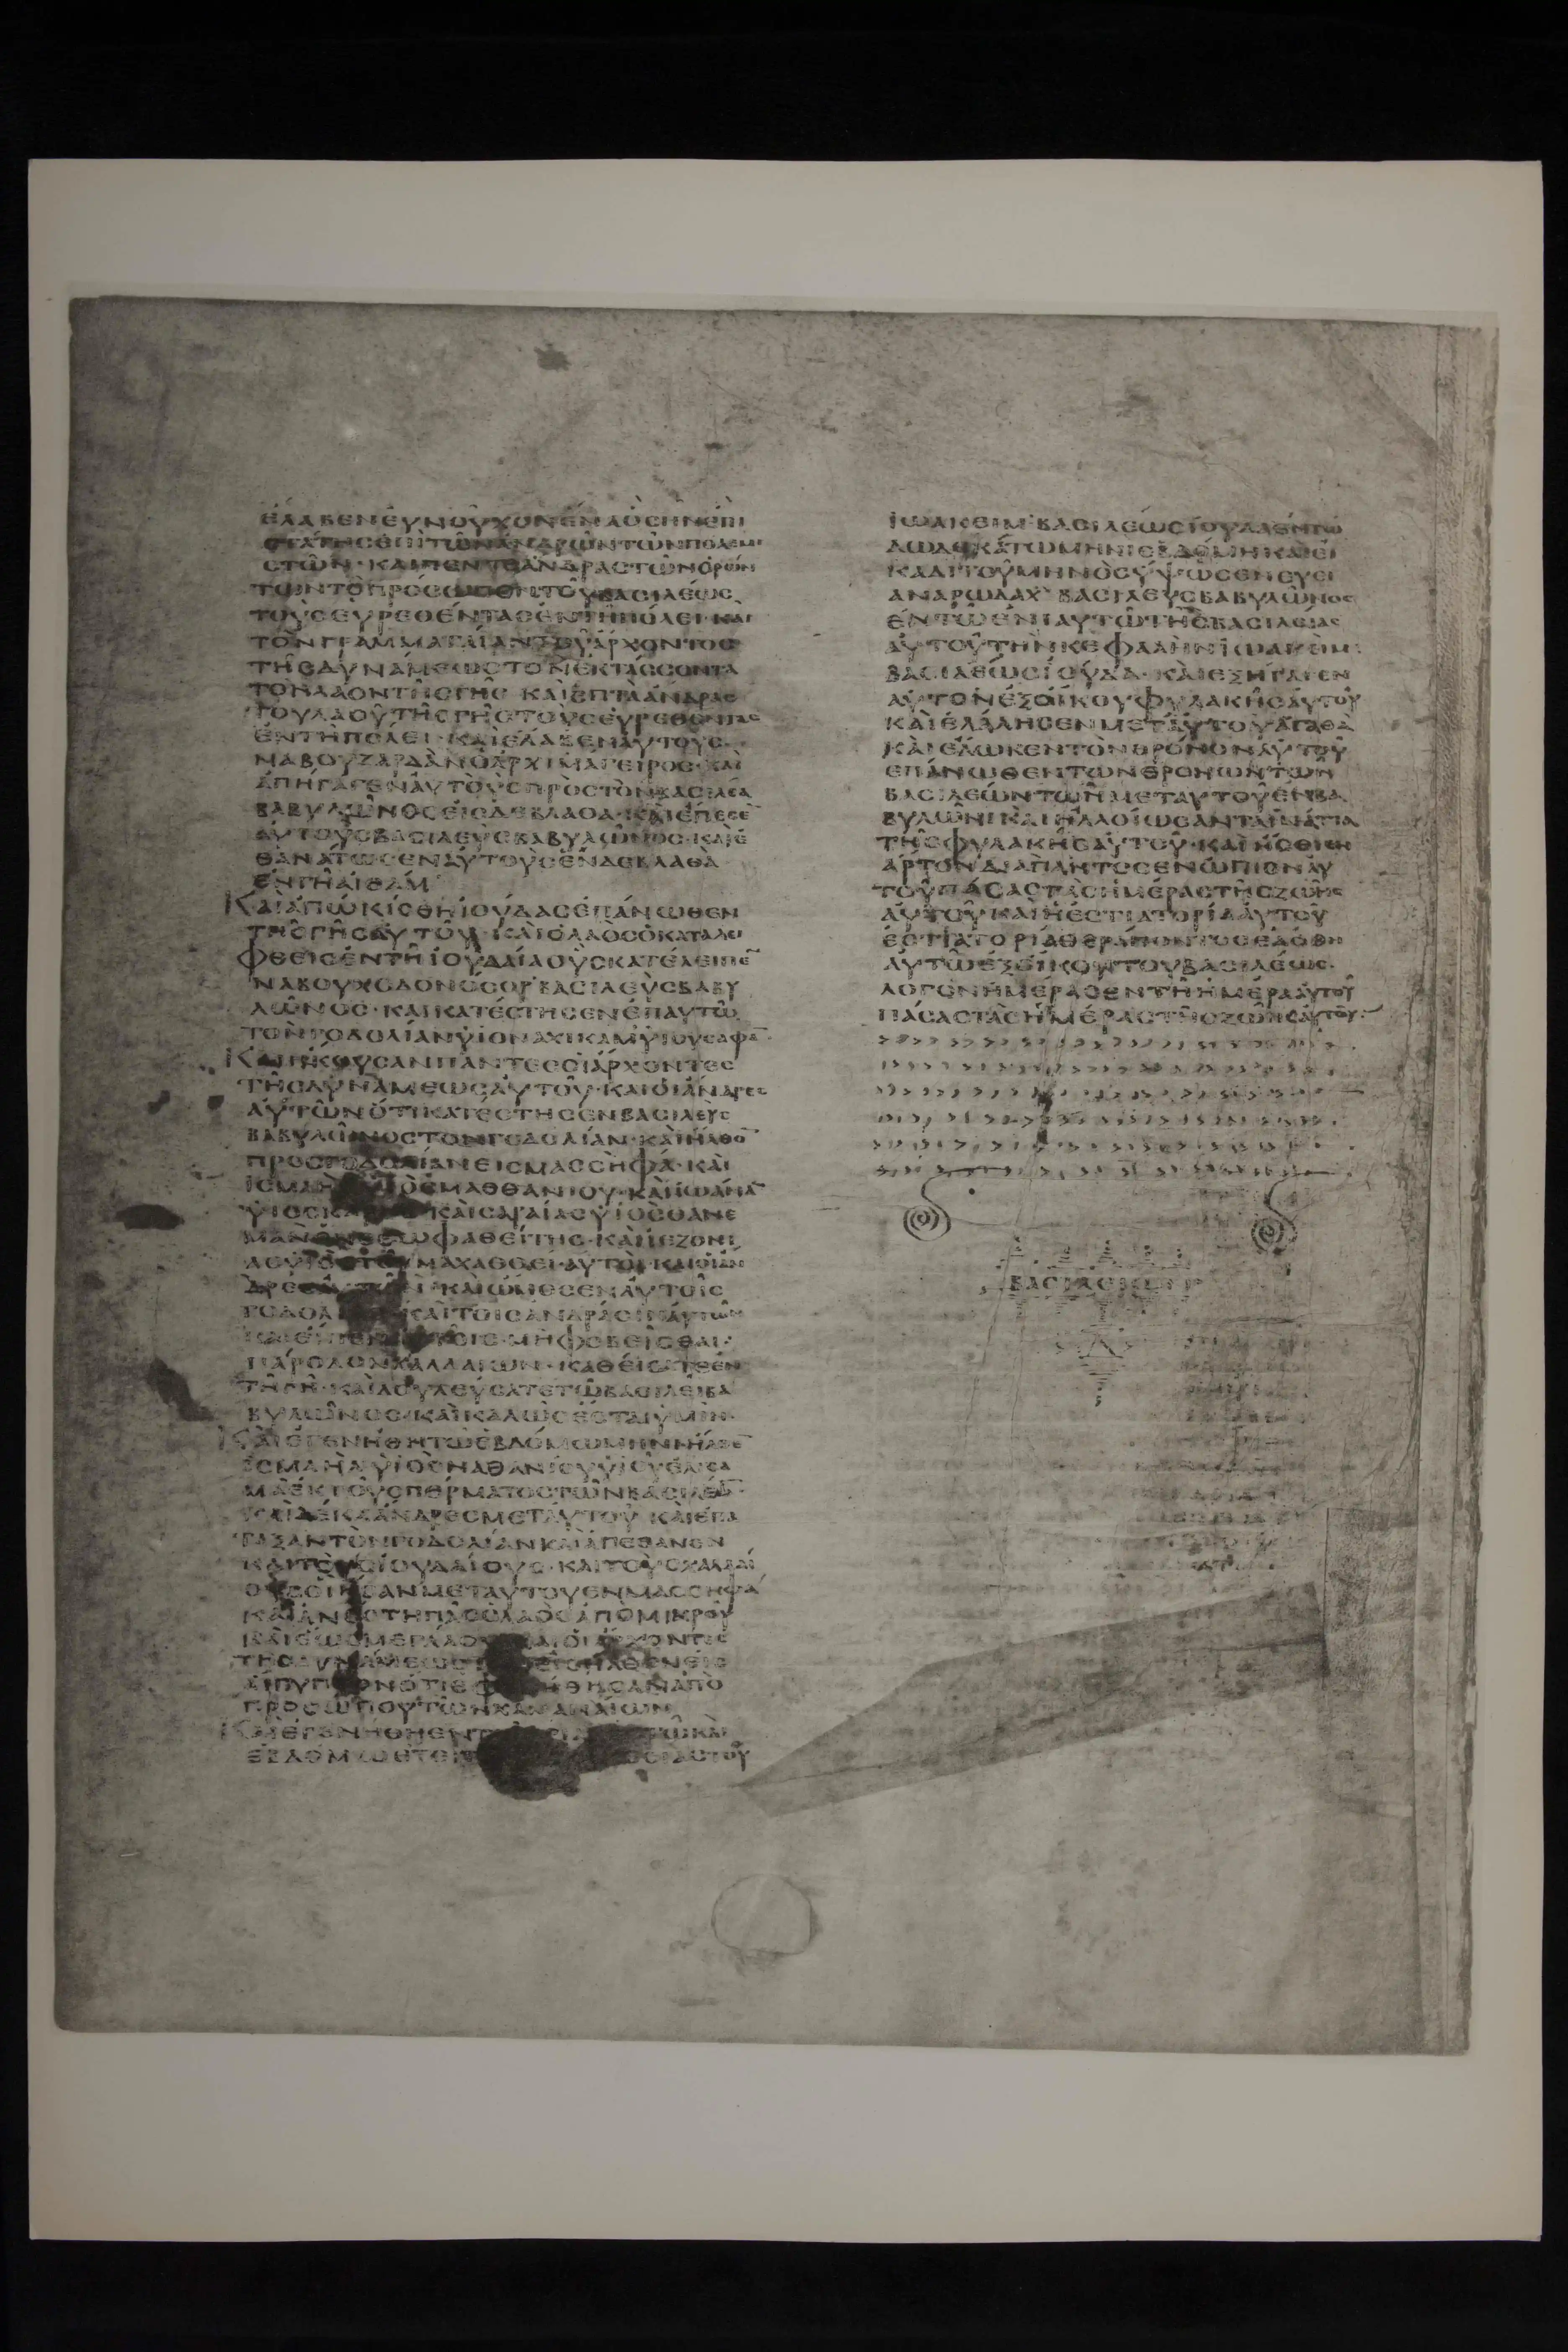 ΕΛΑΒΕΝΕΥΝΟΥΧΟΝΕΝΑΟΣΗΝΕΠΙ
ΣΤΑΤΗΣΕΠΙΤΩΝΑΝΔΡΩΝΤΩΝΠΟΛΕΜΙ
ΣΤΩΝ·ΚΑΙΠΕΝΤΕΑΝΔΡΑΣΤΩΝΟΡΩΝ
ΤΩΝΤΟΠΡΟΣΩΠΟΝΤΟΥΒΑΣΙΛΕΩΣ
ΤΟΥΣΕΥΡΕΘΕΝΤΑΣΕΝΤΗΠΟΛΕΙ·ΚΑΙ
ΤΟΝΓΡΑΜΜΑΤΑΙΑΝΤΟΥΑΡΧΟΝΤΟΣ
ΤΗΣΔΥΝΑΜΕΩΣΤΟΝΕΚΤΑΣΣΟΝΤΑ
ΤΟΝΛΑΟΝΤΗΣΓΗΣ ΚΑΙΕΠΤΑΑΝΔΡΑΣ
ΤΟΥΛΑΟΥΤΗΣΓΗΣΤΟΥΣΕΥΡΕΘΕΝΤΑΣ
ΕΝΤΗΠΟΛΕΙ·ΚΑΙΕΛΑΒΕΝΑΥΤΟΥΣ
ΝΑΒΟΥΖΑΡΔΑΝΟΑΡΧΙΜΑΓΕΙΡΟΣ·ΚΑΙ
ΑΠΗΓΑΓΕΝΑΥΤΟΥΣΠΡΟΣΤΟΝΒΑΣΙΛΕΑ
ΒΑΒΥΛΩΝΟΣΕΙΣΔΕΒΛΑΘΑ·ΚΑΙΕΠΕΣΕ
ΑΥΤΟΥΣΒΑΣΙΛΕΥΣΒΑΒΥΛΩΝΟΣ·ΚΑΙΕ
ΘΑΝΑΤΩΣΕΝΑΥΤΟΥΣΕΝΔΕΒΛΑΘΑ
ΕΝΓΗΑΙΘΑΜ
ΚΑΙΑΠΩΚΙΣΘΗΙΟΥΔΑΣΕΠΑΝΩΘΕΝ
ΤΗΣΓΗΣΑΥΤΟΥ·ΚΑΙΟΛΑΟΣΟΚΑΤΑΛΕΙ
ΦΘΕΙΣΕΝΤΗΙΟΥΔΑΙΑΟΥΣΚΑΤΕΛΕΙΠΕ
ΝΑΒΟΥΧΟΔΟΝΟΣΟΡΒΑΣΙΛΕΥΣΒΑΒΥ
ΛΩΝΟΣ·ΚΑΙΚΑΤΕΣΤΗΣΕΝΕΠΑΥΤΩ
ΤΟΝΓΟΔΟΛΙΑΝΥΙΟΝΑΧΙΚΑΜΥΙΟΥΣΑΦΑ
ΚΑΙΗΚΟΥΣΑΝΠΑΝΤΕΣΟΙΑΡΧΟΝΤΕΣ
ΤΗΣΔΥΝΑΜΕΩΣΑΥΤΟΥ·ΚΑΙΟΙΑΝΔΡΕΣ
ΑΥΤΩΝΟΤΙΚΑΤΕΣΤΗΣΕΝΒΑΣΙΛΕΥΣ
ΒΑΒΥΛΩΝΟΣΤΟΝΓΟΔΟΛΙΑΝ·ΚΑΙΗΛΘΟ
ΠΡΟΣΓΟΔΟΛΙΑΝΕΙΣΜΑΣΣΗΦΑ·ΚΑΙ
ΙΣΜΑΗΛ ΥΙΟΣΜΑΘΘΑΝΙΟΥ·ΚΑΙΙΩΑΝΑ
ΥΙΟΣΚΑ ΚΑΙΣΑΡΑΙΑΣΥΙΟΣΘΑΝΕ
ΜΑΝ ΝΕΩΦΑΘΕΙΤΗΣ·ΚΑΙΙΕΖΟΝΙ
ΑΣΥΙΟΣΤΟΥΜΑΧΑΘΘΕΙ·ΑΥΤΟΙΚΑΙΟΙΑΝ
ΔΡΕΣΑΥΤΩΝ·ΚΑΙΩΜΟΣΕΝΑΥΤΟΙΣ
ΓΟΔΟΛ ΚΑΙΤΟΙΣΑΝΔΡΑΣΙΝΑΥΤΩΝ
ΚΑΙΕΙΠΕΝ ΤΟΙΣ·ΜΗΦΟΒΕΙΣΘΑΙ
ΠΑΡΟΔΟΝΧΑΛΔΑΙΩΝ·ΚΑΘΕΙΣΑΤΕΕΝ
ΤΗΓΗ·ΚΑΙΔΟΥΛΕΥΣΑΤΕΤΩΒΑΣΙΛΕΙΒΑ
ΒΥΛΩΝΟΣ·ΚΑΙΚΑΛΩΣΕΣΤΑΙΥΜΙΝ·
ΚΑΙΕΓΕΝΗΘΗΤΩΕΒΔΟΜΩΜΗΝΙΗΛΘΕ
ΙΣΜΑΗΛΥΙΟΣΝΑΘΑΝΙΟΥΥΙΟΥΕΛΙΣΑ
ΜΑΕΚΤΟΥΣΠΕΡΜΑΤΟΣΤΩΝΒΑΣΙΛΕΩ
ΚΑΙΔΕΚΑΑΝΔΡΕΣΜΕΤΑΥΤΟΥ ΚΑΙΕΠΑ
ΤΑΞΑΝΤΟΝΓΟΔΟΛΙΑΝΚΑΙΑΠΕΘΑΝΕΝ
ΚΑΙΤΟΥΣΙΟΥΔΑΙΟΥΣ·ΚΑΙΤΟΥΣΧΑΛΔΑΙ
ΟΥΣΟΙΗΣΑΝΜΕΤΑΥΤΟΥΕΝΜΑΣΣΗΦΑ
ΚΑΙΑΝΕΣΤΗΠΑΣΟΛΑΟΣΑΠΟΜΙΚΡΟΥ
ΚΑΙΕΩΣΜΕΓΑΛΟΥ ΚΑΙΟΙΑΡΧΟΝΤΕΣ
ΤΗΣΔΥΝΑΜΕΩΣ ΕΙΣΗΛΘΟΝΕΙΣ
ΑΙΓΥΠΤΟΝΟΤΙΕΦΟΒΗΘΗΣΑΝΑΠΟ
ΠΡΟΣΩΠΟΥΤΩΝΧΑΛΔΑΙΩΝ
ΚΑΙΕΓΕΝΗΘΗΕΝΤ ΤΩΚΑΙ
ΕΒΔΟΜΩΕΤΕΙ ΣΙΑΣΤΟΥ
ΙΩΑΚΕΙΜΒΑΣΙΛΕΩΣΙΟΥΔΑΕΝΤΩ
ΔΩΔΕΚΑΤΩΜΗΝΙΕΒΔΟΜΗΚΑΙΕΙ
ΚΑΔΙΤΟΥΜΗΝΟΣΥΨΩΣΕΝΕΥΕΙ
ΑΝΑΡΩΔΑΧ ΒΑΣΙΛΕΥΣΒΑΒΥΛΩΝΟΣ
ΕΝΤΩΕΝΙΑΥΤΩΤΗΣΒΑΣΙΛΕΙΑΣ
ΑΥΤΟΥΤΗΝΚΕΦΑΛΗΝΙΩΑΚΕΙΜ
ΒΑΣΙΛΕΩΣΙΟΥΔΑ·ΚΑΙΕΞΗΓΑΓΕΝ
ΑΥΤΟΝΕΞΟΙΚΟΥΦΥΛΑΚΗΣΑΥΤΟΥ
ΚΑΙΕΛΑΛΗΣΕΝΜΕΤΑΥΤΟΥΑΓΑΘΑ
ΚΑΙΕΔΩΚΕΝΤΟΝΘΡΟΝΟΝΑΥΤΟΥ
ΕΠΑΝΩΘΕΝΤΩΝΘΡΟΝΩΝΤΩΝ
ΒΑΣΙΛΕΩΝΤΩΝΜΕΤΑΥΤΟΥΕΝΒΑ
ΒΥΛΩΝΙΚΑΙΗΛΛΟΙΩΣΑΝΤΑΙΜΑΤΙΑ
ΤΗΣΦΥΛΑΚΗΣΑΥΤΟΥ·ΚΑΙΗΣΘΙΕΝ
ΑΡΤΟΝΔΙΑΠΑΝΤΟΣΕΝΩΠΙΟΝΑΥ
ΤΟΥΠΑΣΑΣΤΑΣΗΜΕΡΑΣΤΗΣΖΩΗΣ
ΑΥΤΟΥΚΑΙΗΕΣΤΙΑΤΟΡΙΑΑΥΤΟΥ
ΕΣΤΙΑΤΟΡΙΑΘΕΡΑΠΟΝΤΟΣΕΔΟΘΗ
ΑΥΤΩΕΞΟΙΚΟΥΤΟΥΒΑΣΙΛΕΩΣ·
ΛΟΓΟΝΗΜΕΡΑΣΕΝΤΗΗΜΕΡΑΑΥΤΟΥ
ΠΑΣΑΣΤΑΣΗΜΕΡΑΣΤΗΣΖΩΗΣΑΥΤΟΥ:
ΒΑΣΙΛΕΙΩΝ
Δ